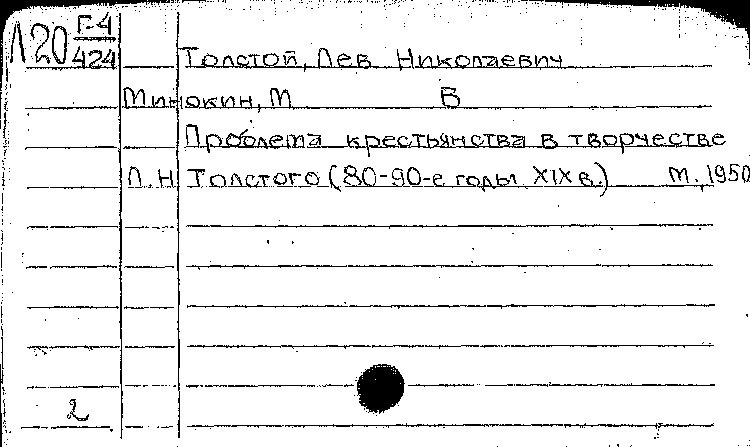 Л20 Г-4
424
Толстой, Лев Николаевич
Минокин, М В
Проблема крестьянства в творчестве
Л.Н Толстого (80-90-е годы XIX в.) М., 1950
2